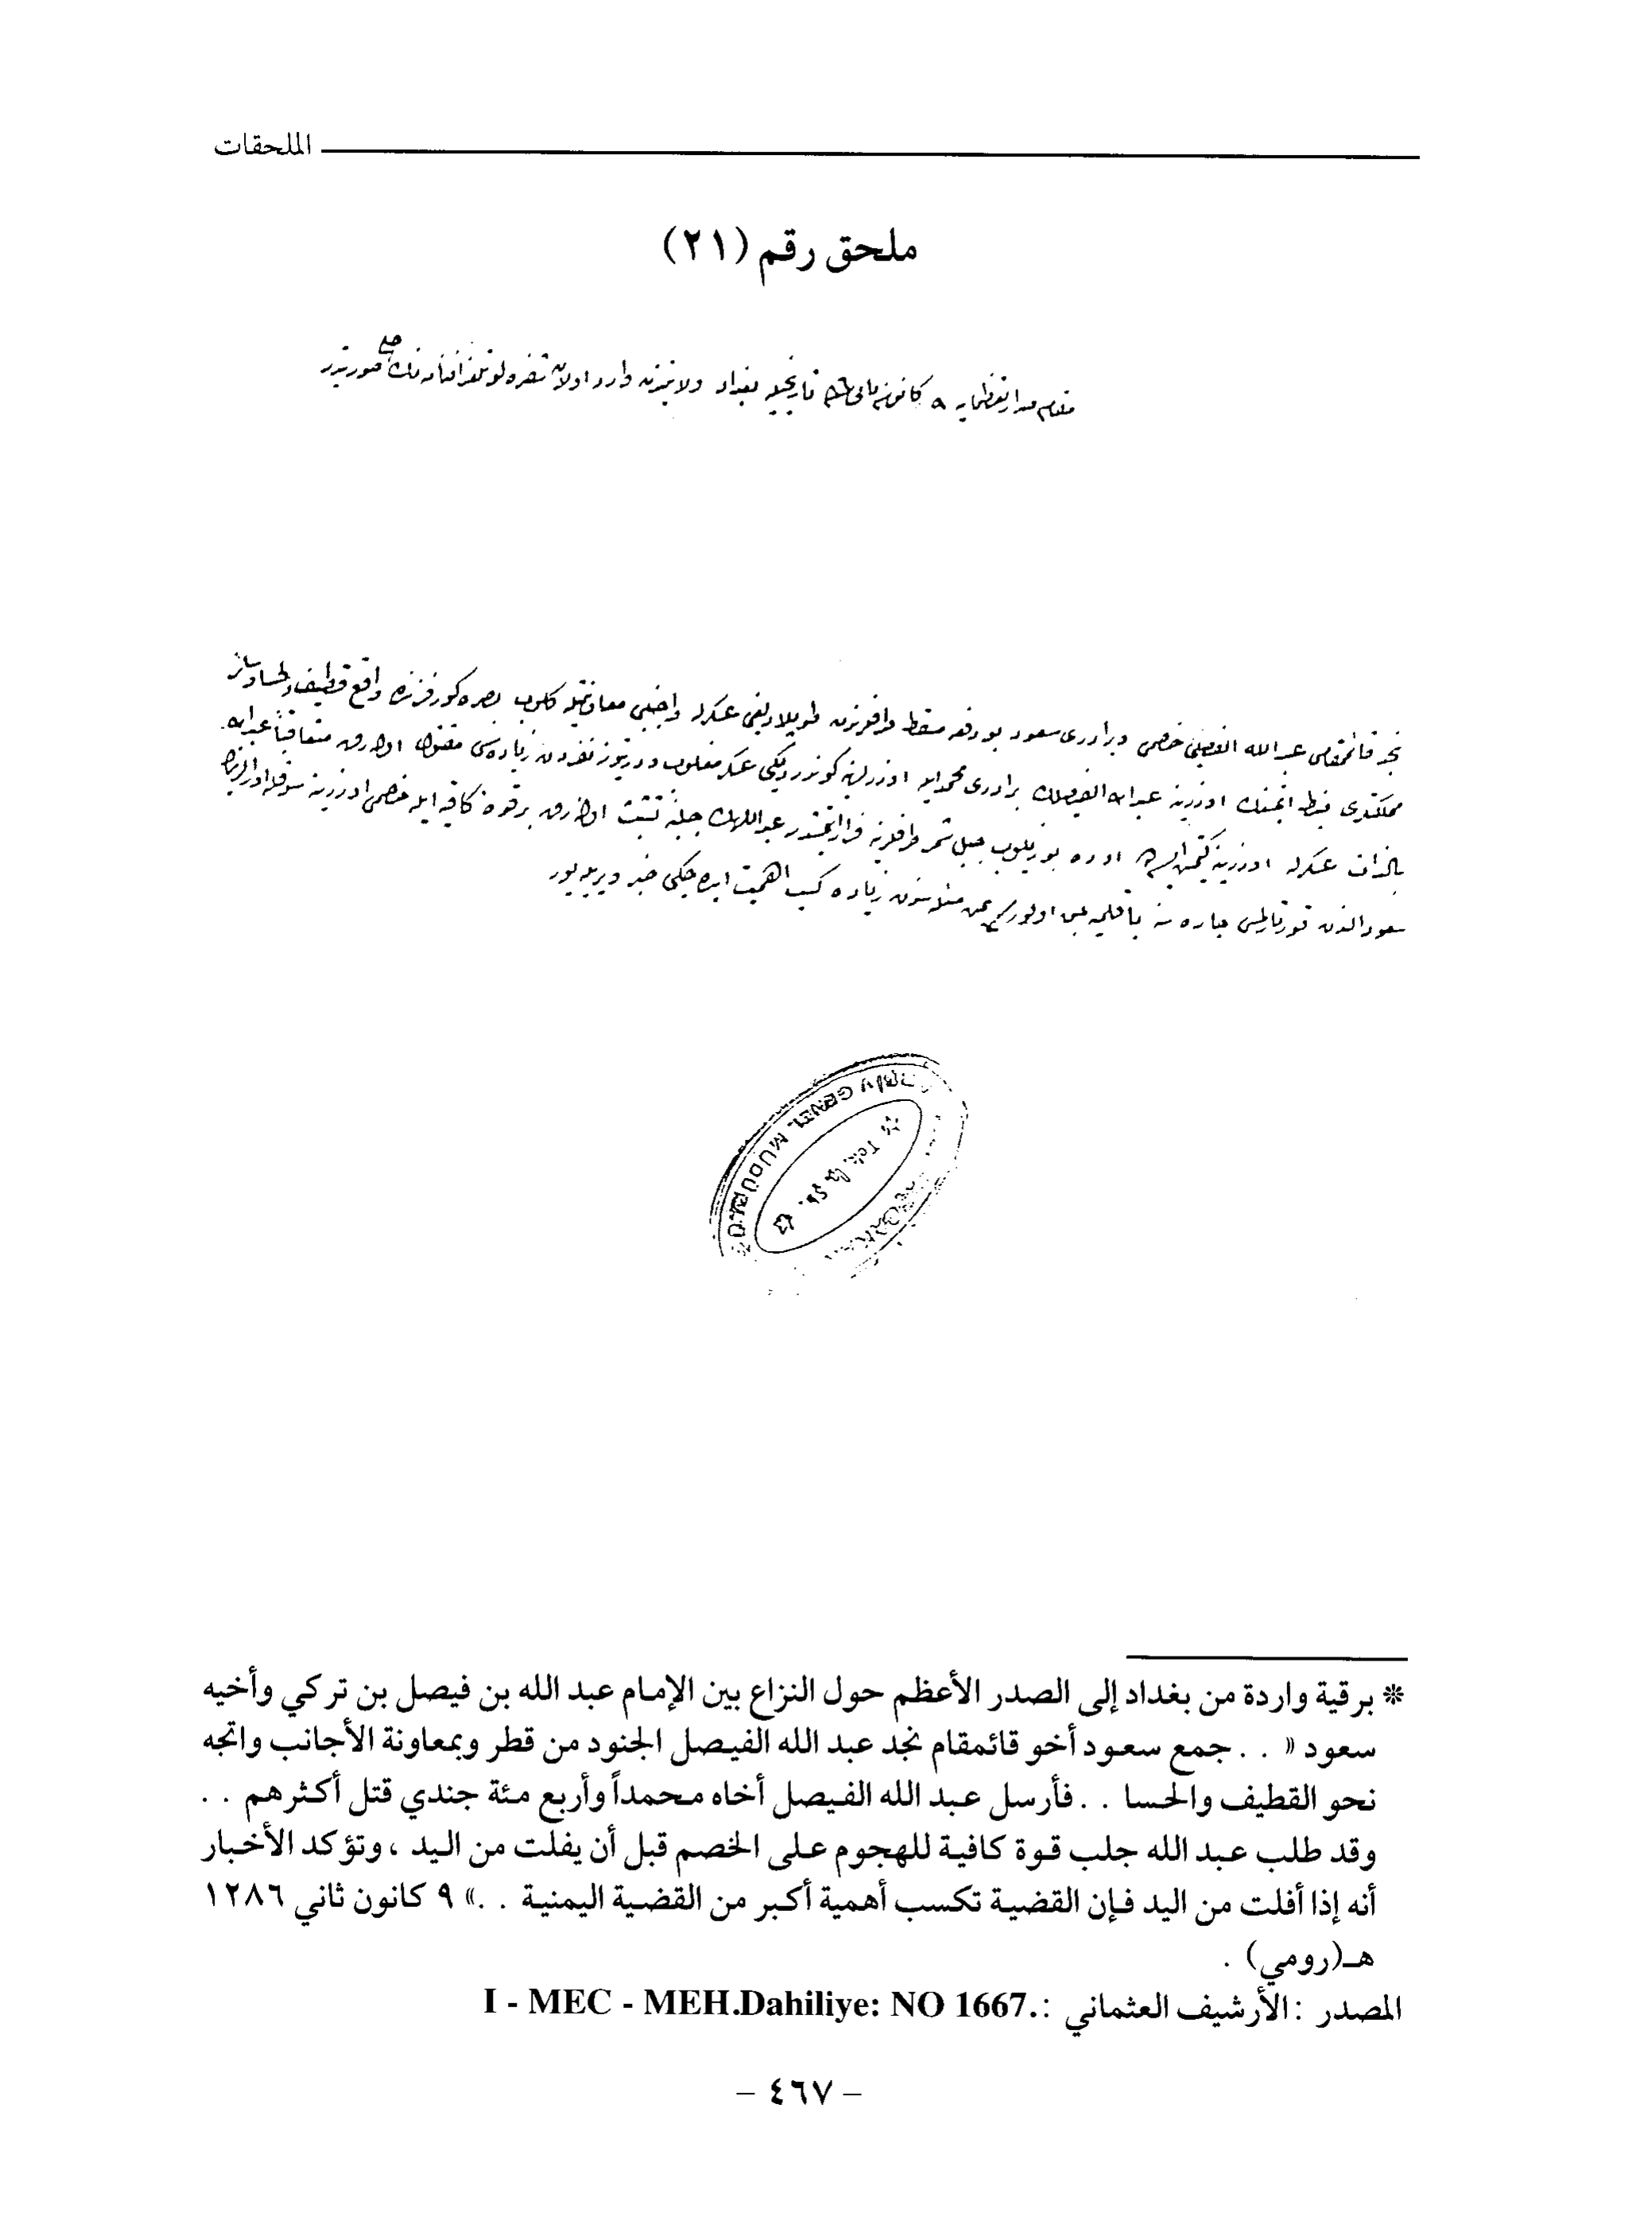 الملحقات
ملحق رقم (٢١)
مقام صدارتعظمايه ٩ كانون ثانى ٨٦ تاريخيله بغداد ولايتندن وارد اولان شفره لو تلغرافنامه نك حلى صورتيدر
نجد قائمقامى عبد الله الفيصلك خصمى وبرادرى سعود بو دفعه مسقط طرافلرندن طوپلاديغى عسكرله واجنبى معاونتيله كلوب بصره كورفزنده واقع قطيف ولحسا وسائر
مملكتلرى ضبط ايتمش اوزرينه عبد الله الفيصلك برادرى محمد ايله اوزرلرينه كوندرديكى عسكر مغلوب ودرتيوز نفردن زياده سى مقتول اوله رق متعاقباً عبد الله
بالذات عسكرله اوزرينه كيتمش ايسه ده بوزيلوب جبل شمر طرفلرينه فرار ايتمشدر عبد اللهك جلبنه تشبث اوله رق بر قوه كافيه ايله خصمى اوزرينه سوق
سعود الدن قورتارلمسى چاره سنه باقلمه يمن مسئله سندن زياده كسب اهميت ايده جكى خبر ويريليور
GENEL MÜDÜRLÜ
* برقية واردة من بغداد إلى الصدر الأعظم حول النزاع بين الإمام عبد الله بن فيصل بن تركي وأخيه
سعود « . . جمع سعود أخو قائمقام نجد عبد الله الفيصل الجنود من قطر وبمعاونة الأجانب واتجه
نحو القطيف والحسا . . فأرسل عبد الله الفيصل أخاه محمداً وأربع مئة جندي قتل أكثرهم . .
وقد طلب عبد الله جلب قوة كافية للهجوم على الخصم قبل أن يفلت من اليد ، وتؤكد الأخبار
أنه إذا أفلت من اليد فإن القضية تكسب أهمية أكبر من القضية اليمنية . .» ٩ كانون ثاني ١٢٨٦
هـ(رومي) .
المصدر : الأرشيف العثماني :.I - MEC - MEH.Dahiliye: NO 1667
– ٤٦٧ –